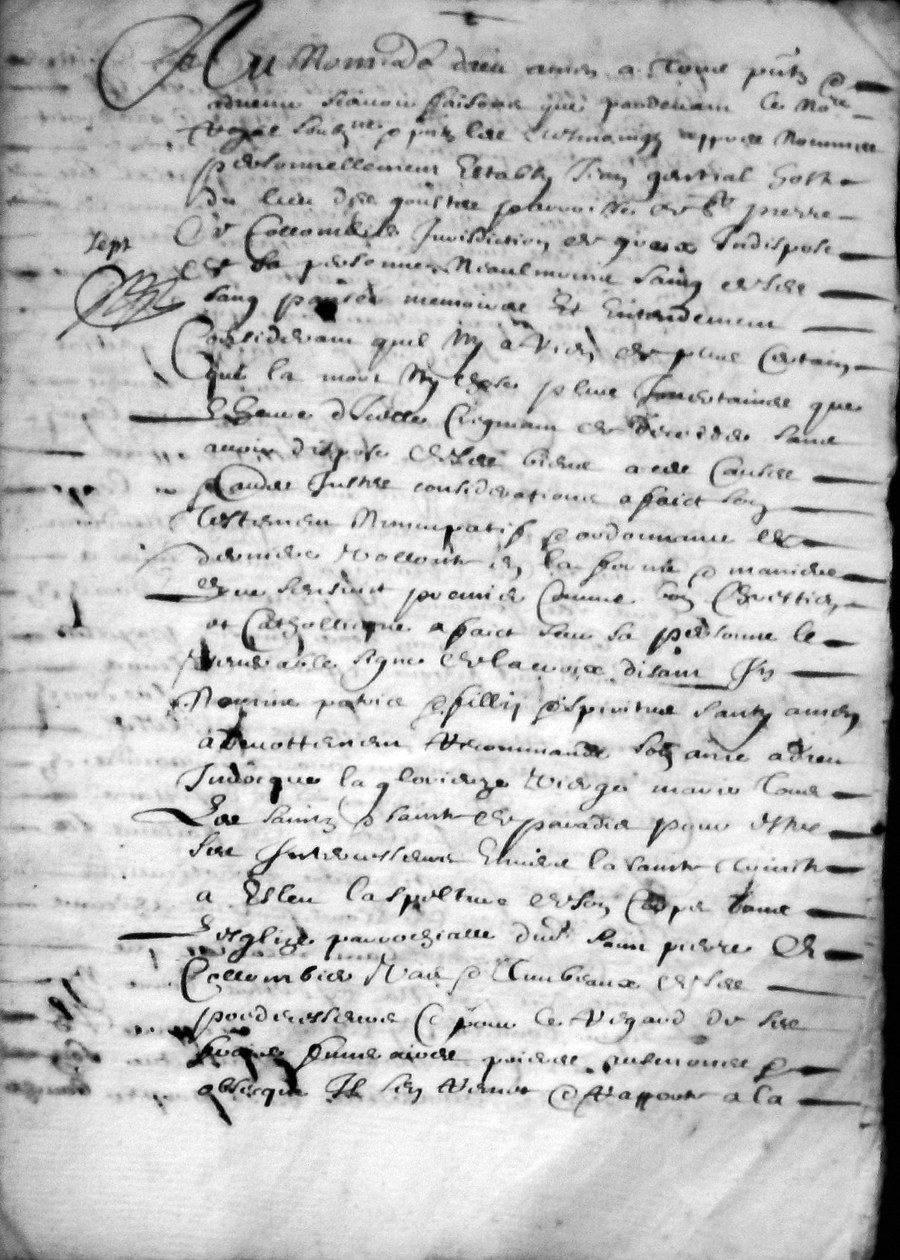 Au Nom de dieu amen a tous pnts &
advenir scavoir faisons que pardevant le No.re
Royal soubz.ne & pnts les tesmoings appres nommes
personnellement estably
du lieu des parroisse de S.t pierre
de Collombier Jurisdiction de Indispose
Sept
de sa personne Neaulmoins sain de ses
sens parolle memoire Et Entendement
Considerant quil Ny a Rien de plus Certain
que la mort Ny chose plus Incertaine que
Lheure dIcelle Creignant de deceder sans
avoir dispose de ses biens a ces Causes
& autres Justes considerations a faict son
Testement Nuncupatif & ordonnance de
derniere vollonte en la forme & maniere
que sensuict premier Comme bon Chrestien
et Catholicque a faict sur sa personne le
venerable signe de la croix disant In
Nomine patris & fillij & spiritus santy amen
a devottement Recommandé son ame a dieu
Invocque la glorieuze vierge marie tous
Les saintz & sainte de paradis pour estre
ses Intercesseurs Envers la sainte trinite
a Esleu la sepulture de son Corps dans
Lesglize parrochialle dud saint pierre de
Collombier Vas & Tumbeaux de ses
predecesseurs & pour le Regard de ses
honneurs funeraires prieres ausmones &
obseques Il sen Remet & Rapporte a la